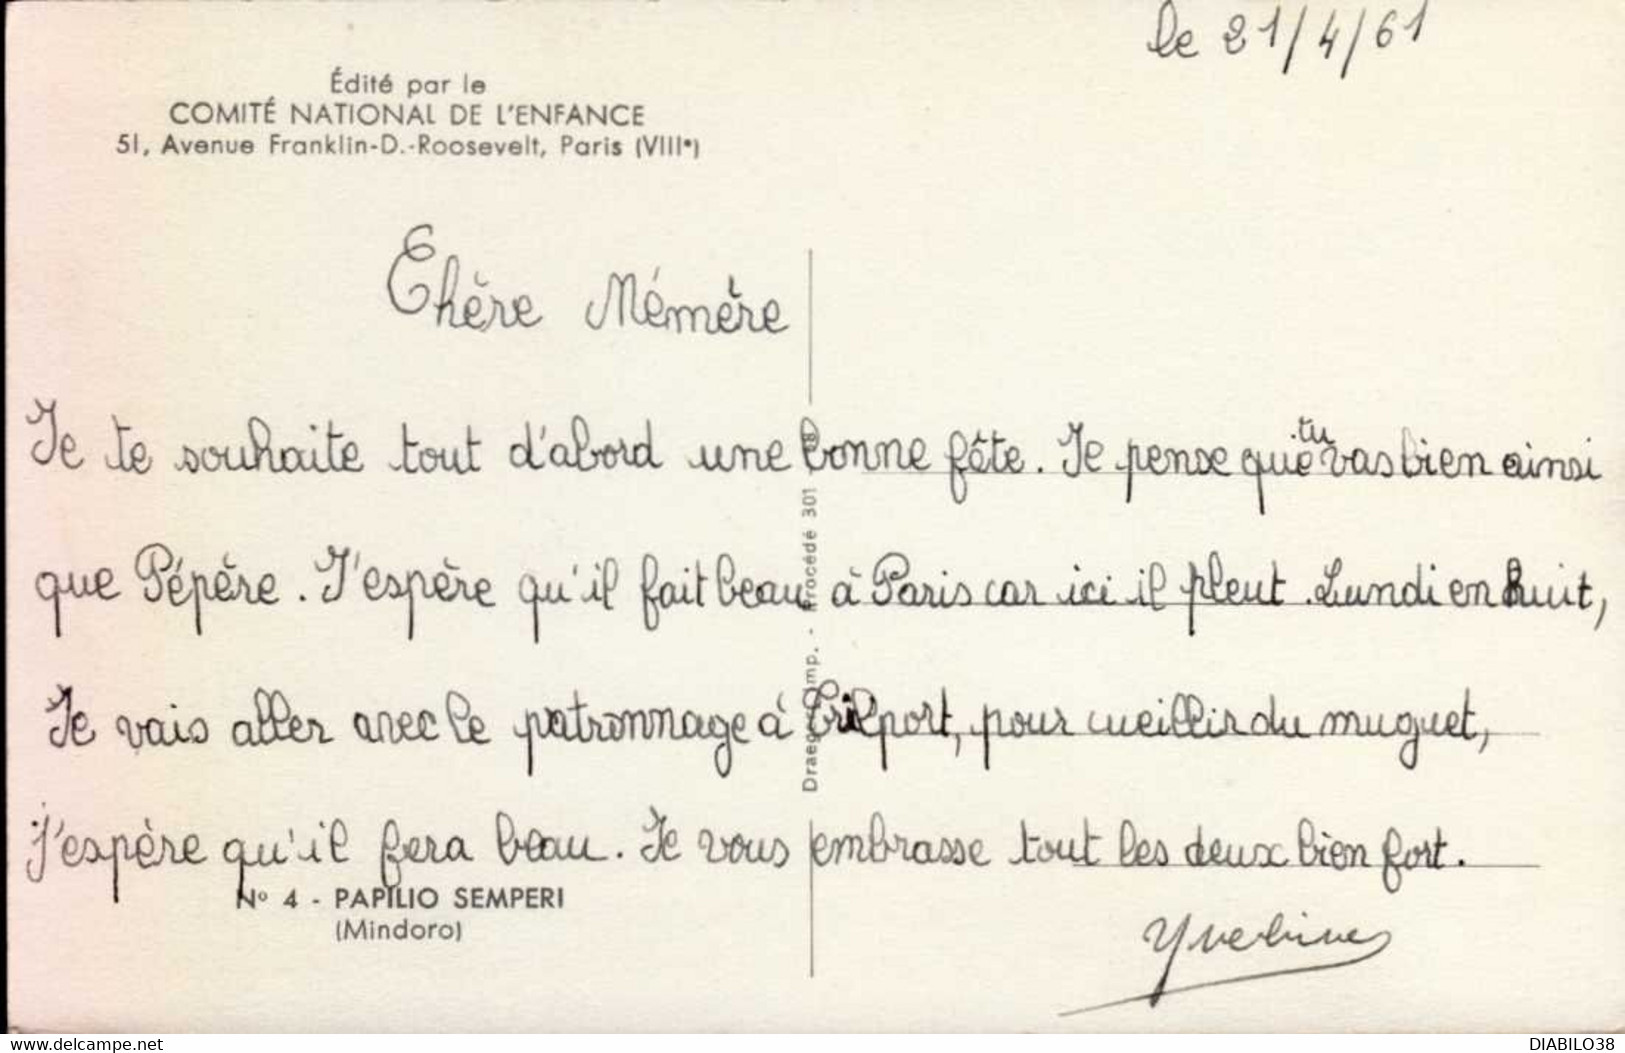 le 21/4/61
Édité par le
COMITÉ NATIONAL DE L'ENFANCE
51, Avenue Franklin-D.-Roosevelt, Paris (VIIIe)
Chère Mémère
Je te souhaite tout d'abord une bonne fête. Je pense que tu vas bien ainsi
que Pépère. J'espère qu'il fait beau à Paris car ici il pleut. Lundi en huit,
Je vais aller avec le patronnage à Trilport, pour cueillir du muguet,
j'espère qu'il fera beau. Je vous embrasse tout les deux bien fort.
Draeger Imp. - Procédé 301
N° 4 - PAPILIO SEMPERI
(Mindoro)
https://www.delcampe.net
DIABILO38